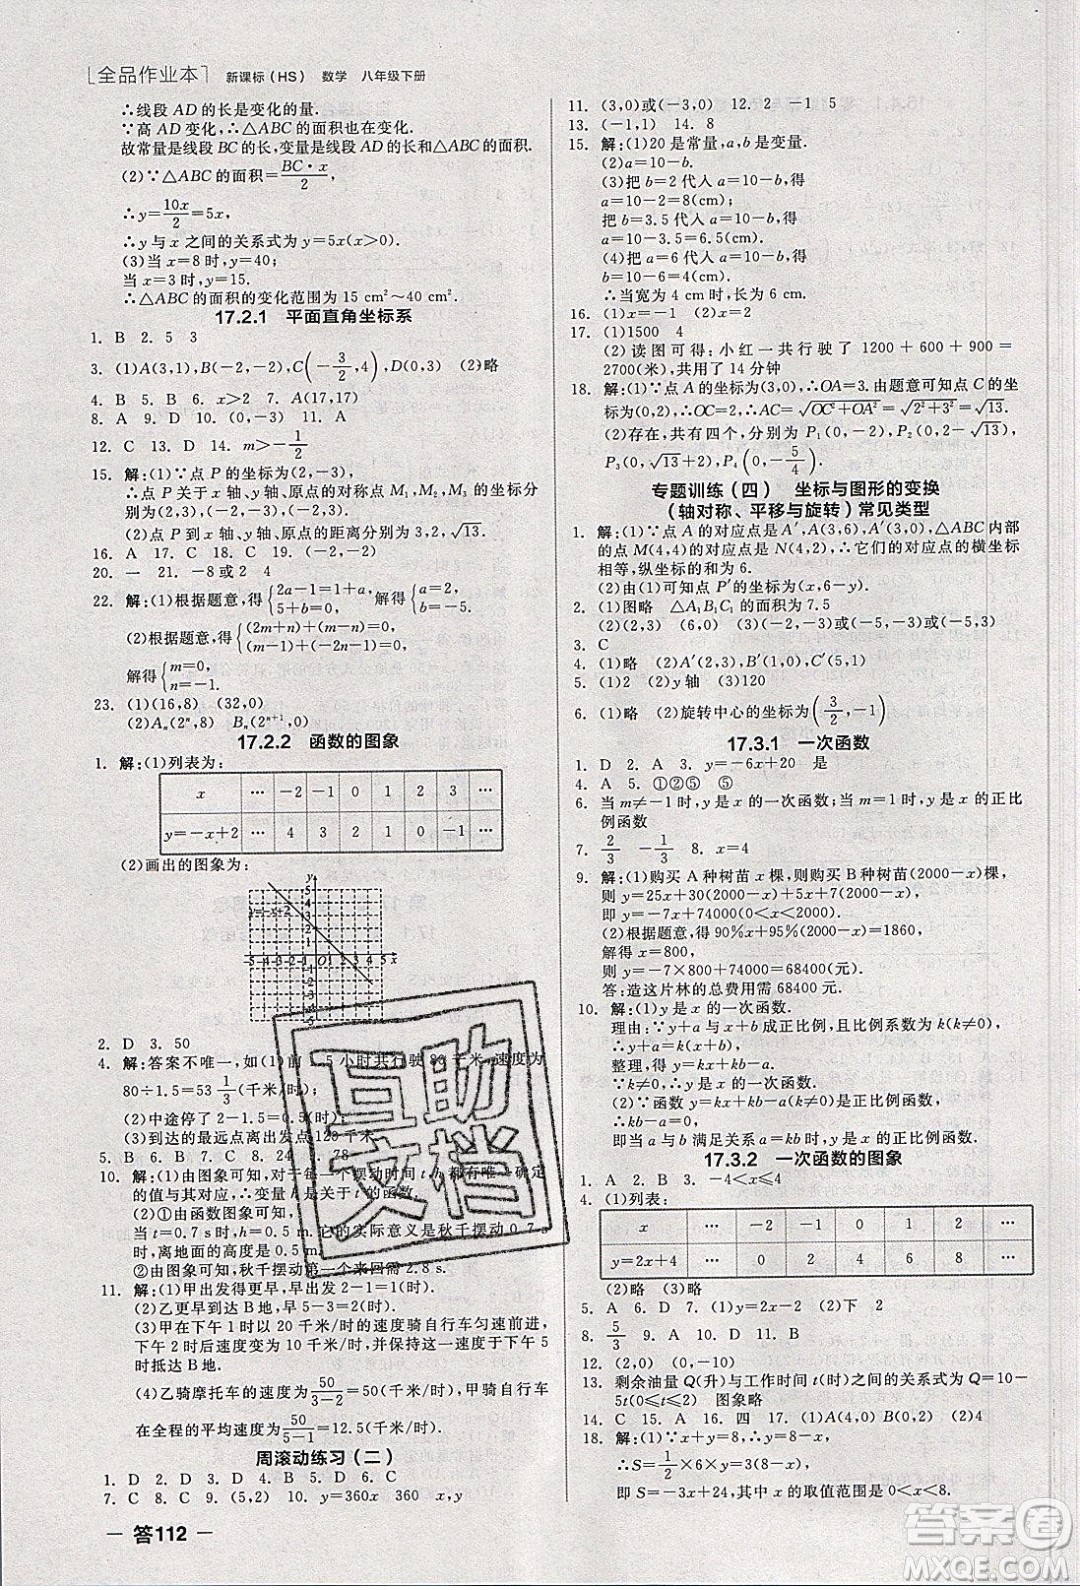 全品作业本 新课标(HS) 数学 八年级下册
∴线段 AD 的长是变化的量.
∵高 AD 变化,∴△ABC 的面积也在变化.
故常量是线段 BC 的长,变量是高 AD 的长和△ABC 的面积.
(2)∵△ABC 的面积=BC·x/2,
∴y=10x/2=5x,
∴y 与 x 之间的关系式为 y=5x(x>0).
(3)当 x=8 时,y=40;
当 x=3 时,y=15.
∴△ABC 的面积的变化范围为 15 cm²~40 cm².
17.2.1 平面直角坐标系
1. B 2. 5 3
3. (1)A(3,1),B(-2,-2),C(-3/2,4),D(0,4) (2)略
4. B 5. B 6. x>2 7. A(17,17)
8. A 9. D 10. (0,-3) 11. A
12. C 13. D 14. m>-1/2
15. 解:(1)∵点 P 的坐标为(2,-3),
∴点 P 关于 x 轴、y 轴、原点的对称点 M₁,M₂,M₃ 的坐标分别为(2,3),(-2,-3),(-2,3).
(2)点 P 到 x 轴、y 轴、原点的距离分别为 3,2,√13.
16. A 17. C 18. C 19. (-2,-2)
20. 一 21. -8或2 4
22. 解:(1)根据题意,得{2a-1=5, 5+b=0, 解得{a=3, b=-5.
(2)根据题意,得{(2m+n)+(m-n)=0, (n-1)+(-2n-1)=0,
解得{m=0, n=-2.
23. (1)(16,8) (32,0)
(2)Aₙ(2ⁿ,8) Bₙ(2ⁿ⁺¹,0)
17.2.2 函数的图象
1. 解:(1)列表为:
x … -2 -1 0 1 2 3 …
y=-x+2 … 4 3 2 1 0 -1 …
(2)画出的图象为:
y=-x+2
2. D 3. 50
4. 解:答案不唯一,如(1)前 1.5 小时共行驶 80 千米,速度为
80÷1.5=53 1/3(千米/时);
(2)中途停了 2-1.5=0.5(时);
(3)到达的最远点离出发点 120 千米.
5. B 6. B 7. C 8. 24 9. 78
10. 解:(1)由图象可知,对于每一个摆动时间 t,h 都有唯一确定
的值与其对应,∴变量 h 是关于 t 的函数.
(2)①由函数图象可知,
当 t=0.7 s时,h=0.5 m.它的实际意义是秋千摆动 0.7 s
时,离地面的高度是 0.5 m.
②由图象可知,秋千摆动第一个来回需 2.8 s.
11. 解:(1)甲出发得更早,早出发 1 时.
(2)乙更早到达 B 地,早到 2 时.
(3)甲下午 1 时到 2 时以 20 千米/时的速度骑自行车匀速前进,
下午 2 时后速度减慢为 10 千米/时,并保持这一速度于下午 5
时抵达 B 地.
(4)乙骑摩托车的速度为 50/(3-2)=50(千米/时),甲骑自行车
在全程的平均速度为 50/(5-1)=12.5(千米/时).
周滚动练习(二)
1. D 2. D 3. D 4. B 5. D 6. C
7. C 8. C 9. (5,2) 10. y=360x 360 x,y
— 答112 —
11. (3,0)或(-3,0) 12. 2 -1 5
13. (-1,1) 14. 8
15. 解:(1)20 是常量,a,b 是变量.
(2)a=10-b.
(3)把 b=2 代入 a=10-b,得
a=10-2=8(cm);
把 b=3.5 代入 a=10-b,得
a=10-3.5=6.5(cm).
(4)把 b=6 代入 a=10-b,得
a=10-6=4(cm),
∴当宽为 4 时,长为 4 cm.
16. (1)x (2)x (3)x
17. (1)1500 4
(2)读图可得:小红一共行驶了 1200+600+900=
2700(米),共用了 14 分钟
18. 解:(1)∵点 A 的坐标为(3,0),∴OA=3.由题意可知点 C 的坐
标为(0,2),∴OC=2,∴AC=√(OC²+OA²)=√(2²+3²)=√13.
(2)存在,共有四个,分别为 P₁(0,-2),P₂(0,2-√13),
P₃(0,√13+2),P₄(0,-5/4)
专题训练(四) 坐标与图形的变换
(轴对称、平移与旋转)常见类型
1. 解:(1)∵点 A 的对应点是 A′,A(3,6),A′(3,0),△ABC 内部
的点 M(4,4)的对应点是 N(4,2),∴它们的对应点的横坐标
相等,纵坐标的和为 6.
(2)由(1)可知点 P′的坐标为(x,6-y).
2. (1)图略 △A₁B₁C₁ 的面积为 7.5
(2)(2,3) (6,0) (3)(-2,-3)或(-5,-3)或(-5,3)
3. C
4. (1)略 (2)A′(2,3),B′(1,0),C′(5,1)
5. (1)2 (2)y轴 (3)120
6. (1)略 (2)旋转中心的坐标为(3/2,-1)
17.3.1 一次函数
1. D 2. A 3. y=-6x+20 是
4. A 5. ①②⑤ ⑤
6. 当 m≠-1 时,y 是 x 的一次函数;当 m=1 时,y 是 x 的正比
例函数
7. 2/3 -1/3 8. x=4
9. 解:(1)购买 A 种树苗 x 棵,则购买 B 种树苗(2000-x)棵,
则 y=25x+30(2000-x)+5x+4(2000-x),
即 y=-7x+74000(0<x<2000).
(2)根据题意,得 90%x+95%(2000-x)=1860,
解得 x=800,
则 y=-7×800+74000=68400(元).
答:造这片林的总费用需 68400 元.
10. 解:(1)y 是 x 的一次函数.
理由:∵y+a 与 x+b 成正比例,且比例系数为 k,
∴y+a=k(x+b),
整理,得 y=kx+kb-a.
∵k≠0,k,a,b 是常数,
∴y=kx+kb-a 是一次函数.
(2)若 y 是 x 的正比例函数,则 kb-a=0,
即当 a,b 满足关系 a=kb 时,y 是 x 的正比例函数.
17.3.2 一次函数的图象
1. A 2. B 3. -4<x≤4
4. (1)列表:
x … -2 -1 0 1 2 …
y=2x+4 … 0 2 4 6 8 …
(2)略 (3)略
5. A 6. D 7. (1)y=2x-2 (2)下 2
8. 5/3 9. A 10. D 11. A
12. (2,0) (0,-10)
13. 剩余油量 Q(升)与工作时间 t(时)之间的关系式为 Q=10-
5t(0≤t≤2) 图象略
14. C 15. A 16. 四 17. (1)A(4,0) B(0,2) (2)4
18. 解:(1)∵x+y=8,∴y=8-x,
∴S=1/2×6×y=3(8-x)=-3x+24(0<x<8),
即 S=-3x+24,x 的取值范围是 0<x<8.
互助
文档
答案圈
MXQE.COM